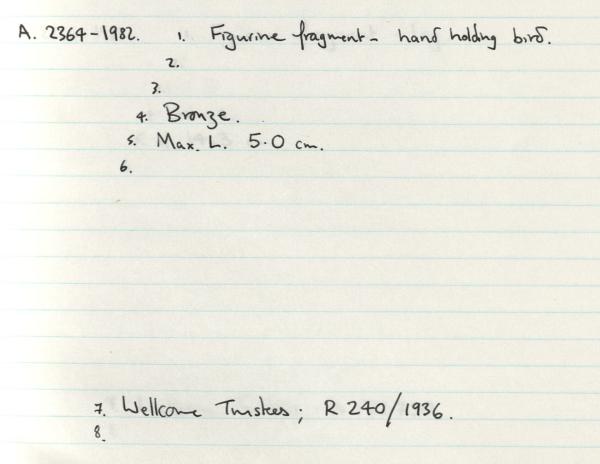 A. 2364-1982. 1. Figurine fragment - hand holding bird.
2.
3.
4. Bronze.
5. Max. L. 5.0 cm.
6.
7. Wellcome Trustees; R 240/1936.
8.